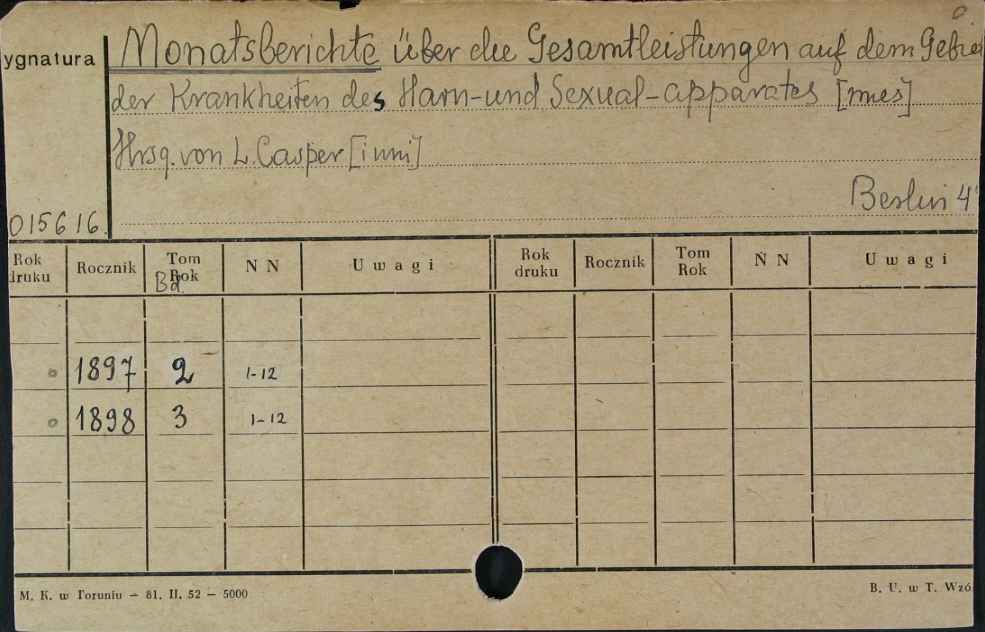 ygnatura
Monatsberichte über die Gesamtleistungen auf dem Gebie
der Krankheiten des Harn-und Sexual-apparates [mies]
Hrsg. von L. Casper [i inni]
Berlin 4°
015616.
Rok druku Rocznik Tom Rok Bd. N N Uwagi Rok druku Rocznik Tom Rok N N Uwagi
1897 2 1-12
1898 3 1-12
M. K. w Toruniu — 81. II. 52 — 5000
B. U. w T. Wzó